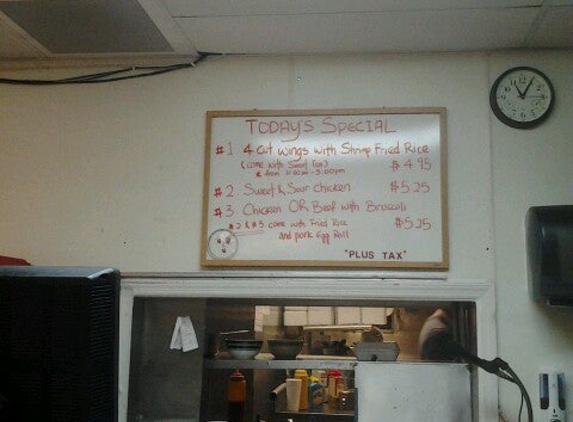 TODAY'S SPECIAL
#1 4 cut wings with Shrimp Fried Rice
(come with Sweet Tea) $4.95
* from 11:00am - 3:00pm
#2 Sweet & Sour chicken $5.25
#3 Chicken OR Beef with Broccoli
#2 & #3 come with Fried Rice $5.25
and pork Egg Roll
"PLUS TAX"